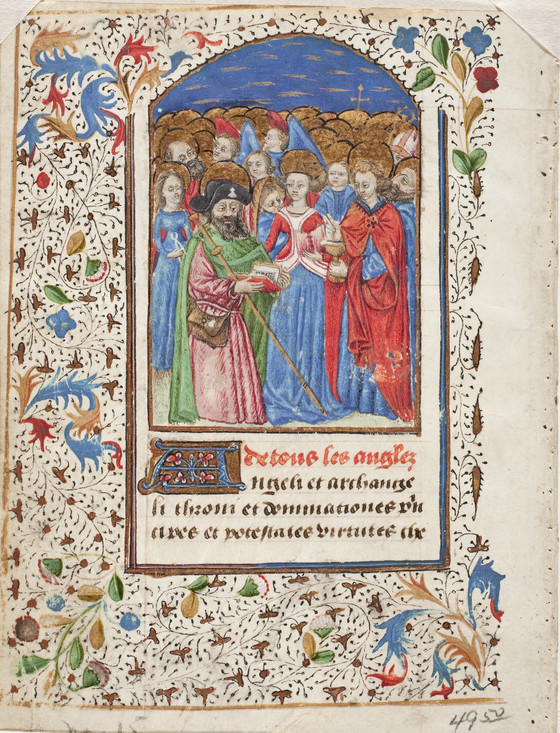 De tous les anglez
Angeli et archange
li throni et dominationes pⁱn
cipes et potestates virtutes ce
495⁰⁰